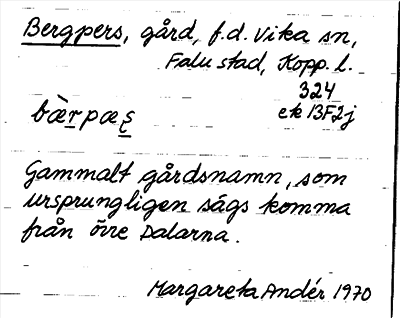 Bergpers, gård, f.d. Vika sn,
Falu stad, Kopp. l.
324
ek 13F2j
bæ̀r̲pæş
Gammalt gårdsnamn, som
ursprungligen sägs komma
från övre Dalarna.
Margareta Andér 1970